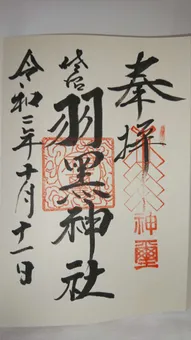 奉拝
羽黒神社
令和三年十月十一日